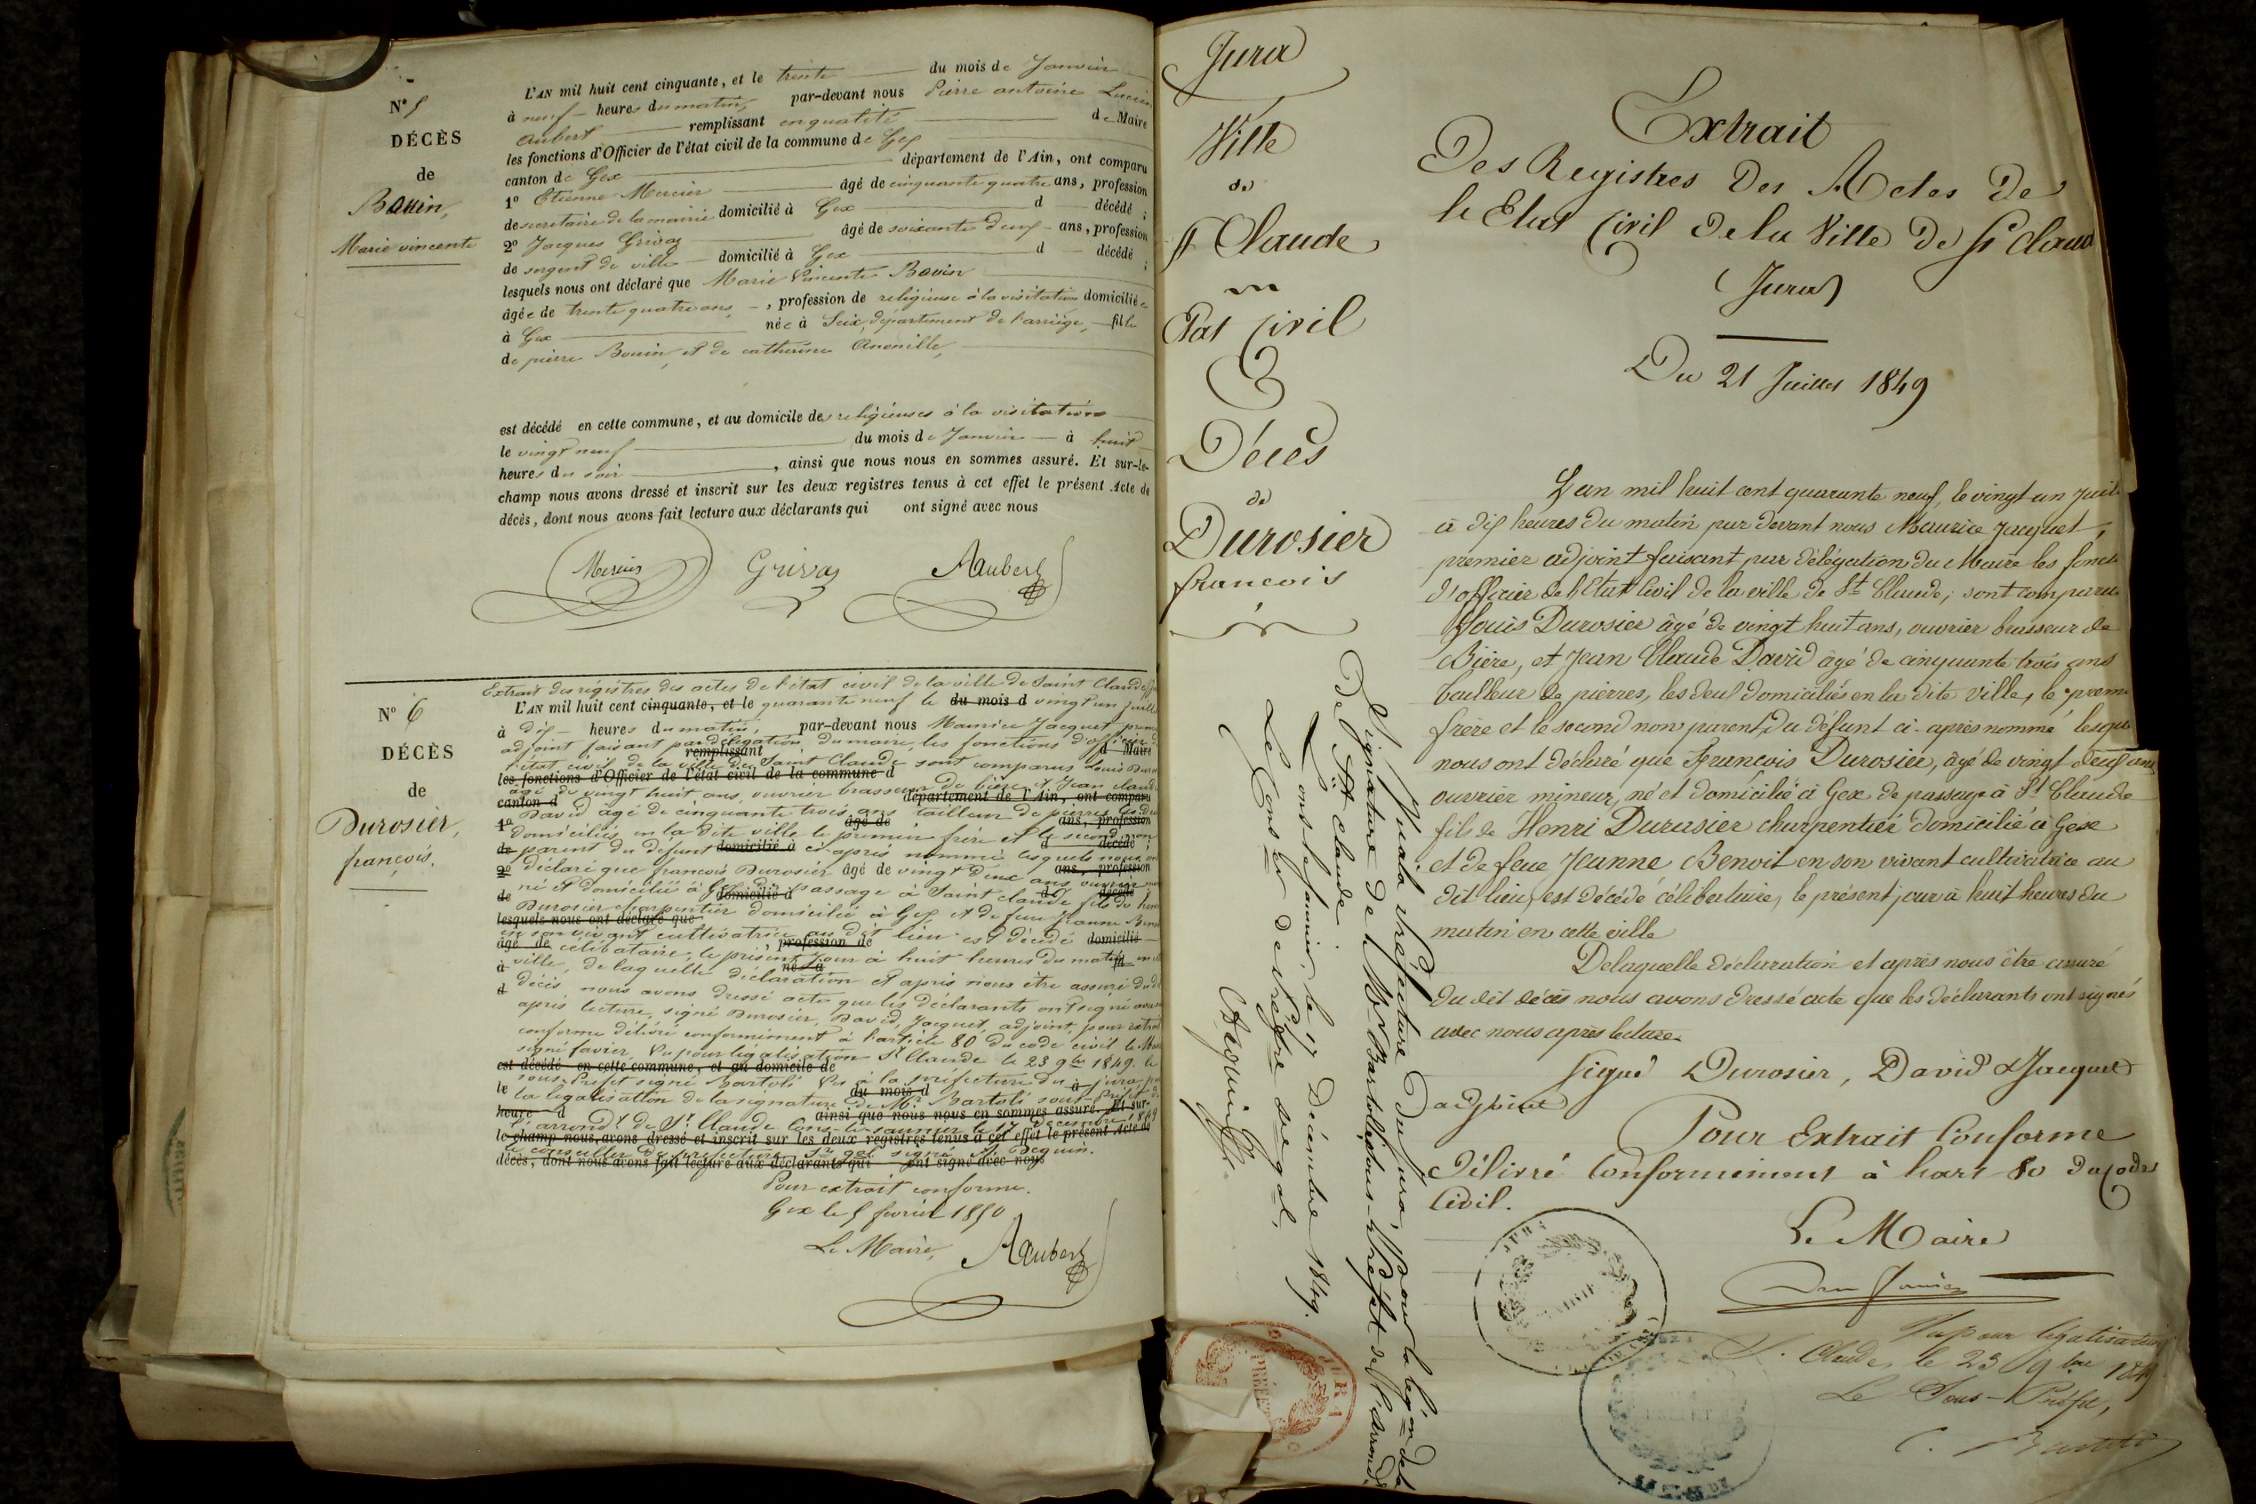 N° 5
DÉCÈS
de
Bouin,
Marie vincente
L'AN mil huit cent cinquante, et le trente du mois de Janvier
à neuf heures du matin, par-devant nous Pierre antoine Lucien
Aubert remplissant en qualité de Maire
les fonctions d'Officier de l'état civil de la commune de Gex
canton de Gex département de l'Ain, ont comparu
1° Etienne Mercier âgé de cinquante quatre ans, profession
de secretaire de la mairie domicilié à Gex d décédé ;
2° Jacques Grivaz âgé de soixante deux ans, profession
de sergent de ville domicilié à Gex d décédé ;
lesquels nous ont déclaré que Marie Vincente Bouin
âgée de trente quatre ans, profession de religieuse à la visitation domiciliée
à Gex née à Seix, département de l'arriège, fille
de pierre Bouin, et de catherine
est décédé en cette commune, et au domicile des religieuses à la visitation
le vingt neuf du mois de Janvier à huit
heures du soir, ainsi que nous nous en sommes assuré. Et sur-le-
champ nous avons dressé et inscrit sur les deux registres tenus à cet effet le présent Acte de
décès, dont nous avons fait lecture aux déclarants qui ont signé avec nous
Mercier Grivaz Aubert
N° 6
DÉCÈS
de
Durosier,
françois.
Extrait des régistres des actes de l'état civil de la ville de Saint Claude
L'AN mil huit cent cinquante, et le quarante neuf le du mois d vingt un juillet
à dix heures du matin, par-devant nous Maurice Jacquet
adjoint faisant par délégation du maire, les fonctions d'officier
remplissant d Maire
l'état civil de la ville de Saint Claude sont comparus Louis
les fonctions d'Officier de l'état civil de la commune d
âgé de vingt huit ans, ouvrier brasseur de bière, et Jean
canton d département de l'Ain, ont comparu
David âgé de cinquante trois ans tailleur de pierres
1° âgé de ans, profession
domiciliés en la dite ville le premier frère et le second non
de parent du défunt domicilié à ci-après nommé lesquels nous d décédé ;
2° déclaré que françois Durosier âgé de vingt deux ans ouvrier ans, profession
né et domicilié à Gex de passage à Saint Claude fils de
de domicilié d d décédé
Durosier charpentier domicilié à Gex et de feue Jeanne
lesquels nous ont déclaré que
en son vivant cultivatrice au dit lieu est décédé domicilié
âgé de célibataire, le présent jour à huit heures du matin profession de
à ville, de laquelle déclaration et après nous être assuré du né à
d décès nous avons dressé acte que les déclarants ont signé
après lecture, signé Durosier, David, Jacquet, adjoint, pour extrait
conforme délivré conformément à l'article 80 du code civil le
signé favier. Vu pour légalisation St Claude le 23 9bre 1849. le
est décédé en cette commune, et au domicile de
sous-Prefet signé Bartoli Vu à la préfecture du jura
le du mois d à
la légalisation de la signature de Mr Bartoli sous-Préfet
heure d ainsi que nous nous en sommes assuré. Et sur-
l'arrondt de St Claude Lons-le-saunier le 17 décembre 1849
le champ nous avons dressé et inscrit sur les deux registres tenus à cet effet le présent Acte de
le conseiller de prefecture
décès, dont nous avons fait lecture aux déclarants qui ont signé avec nous
Pour extrait conforme.
Gex le 5 fevrier 1850
Le Maire, Aubert
Jura
Ville
de
St Claude
Etat Civil
Décès
de
Durosier
francois
Vu à la Préfecture du Jura, Pour la légon de la
Signature de Mr Bartoli, Sous-Préfet de l'arrondt
de St Claude.
Lons-le-Saunier, le 17 Décembre 1849.
Le Conser de Préfre
JURA
Extrait
Des Registres Des Actes De
l'Etat Civil De la Ville De St Claud
(Jura)
Du 21 Juillet 1849
L'an mil huit cent quarante neuf, le vingt un Juil
à dix heures du matin par devant nous Maurice Jacquet,
premier adjoint faisant par délégation du Maire les fonct
d'officier de l'Etat Civil de la ville de St Claude, sont comparu
Louis Durosier âgé de vingt huit ans, ouvrier brasseur de
Bière, et Jean Claude David âgé de cinquante trois ans
tailleur de pierres, les deux domiciliés en la dite ville, le prem
frère et le second non parent du défunt ci-après nommé lesqu
nous ont déclaré que François Durosier, âgé de vingt deux ans
ouvrier mineur, né et domicilié à Gex de passage à St Claude
fils de Henri Durosier charpentier domicilié à Gex
et de feue Jeanne Benoit en son vivant cultivatrice au
dit lieu, est décédé célibataire, le présent jour à huit heures du
matin en cette ville
De laquelle déclaration et après nous être assuré
du dit décès nous avons dressé acte que les déclarants ont signés
avec nous après lecture.
Signé Durosier, David & Jacquet
adjoint
Pour Extrait Conforme
Délivré Conformement à l'art 80 du Code
Civil.
Le Maire
Vu pour légalisation
St Claude, le 23 9bre 1849
Le Sous-Préfet,